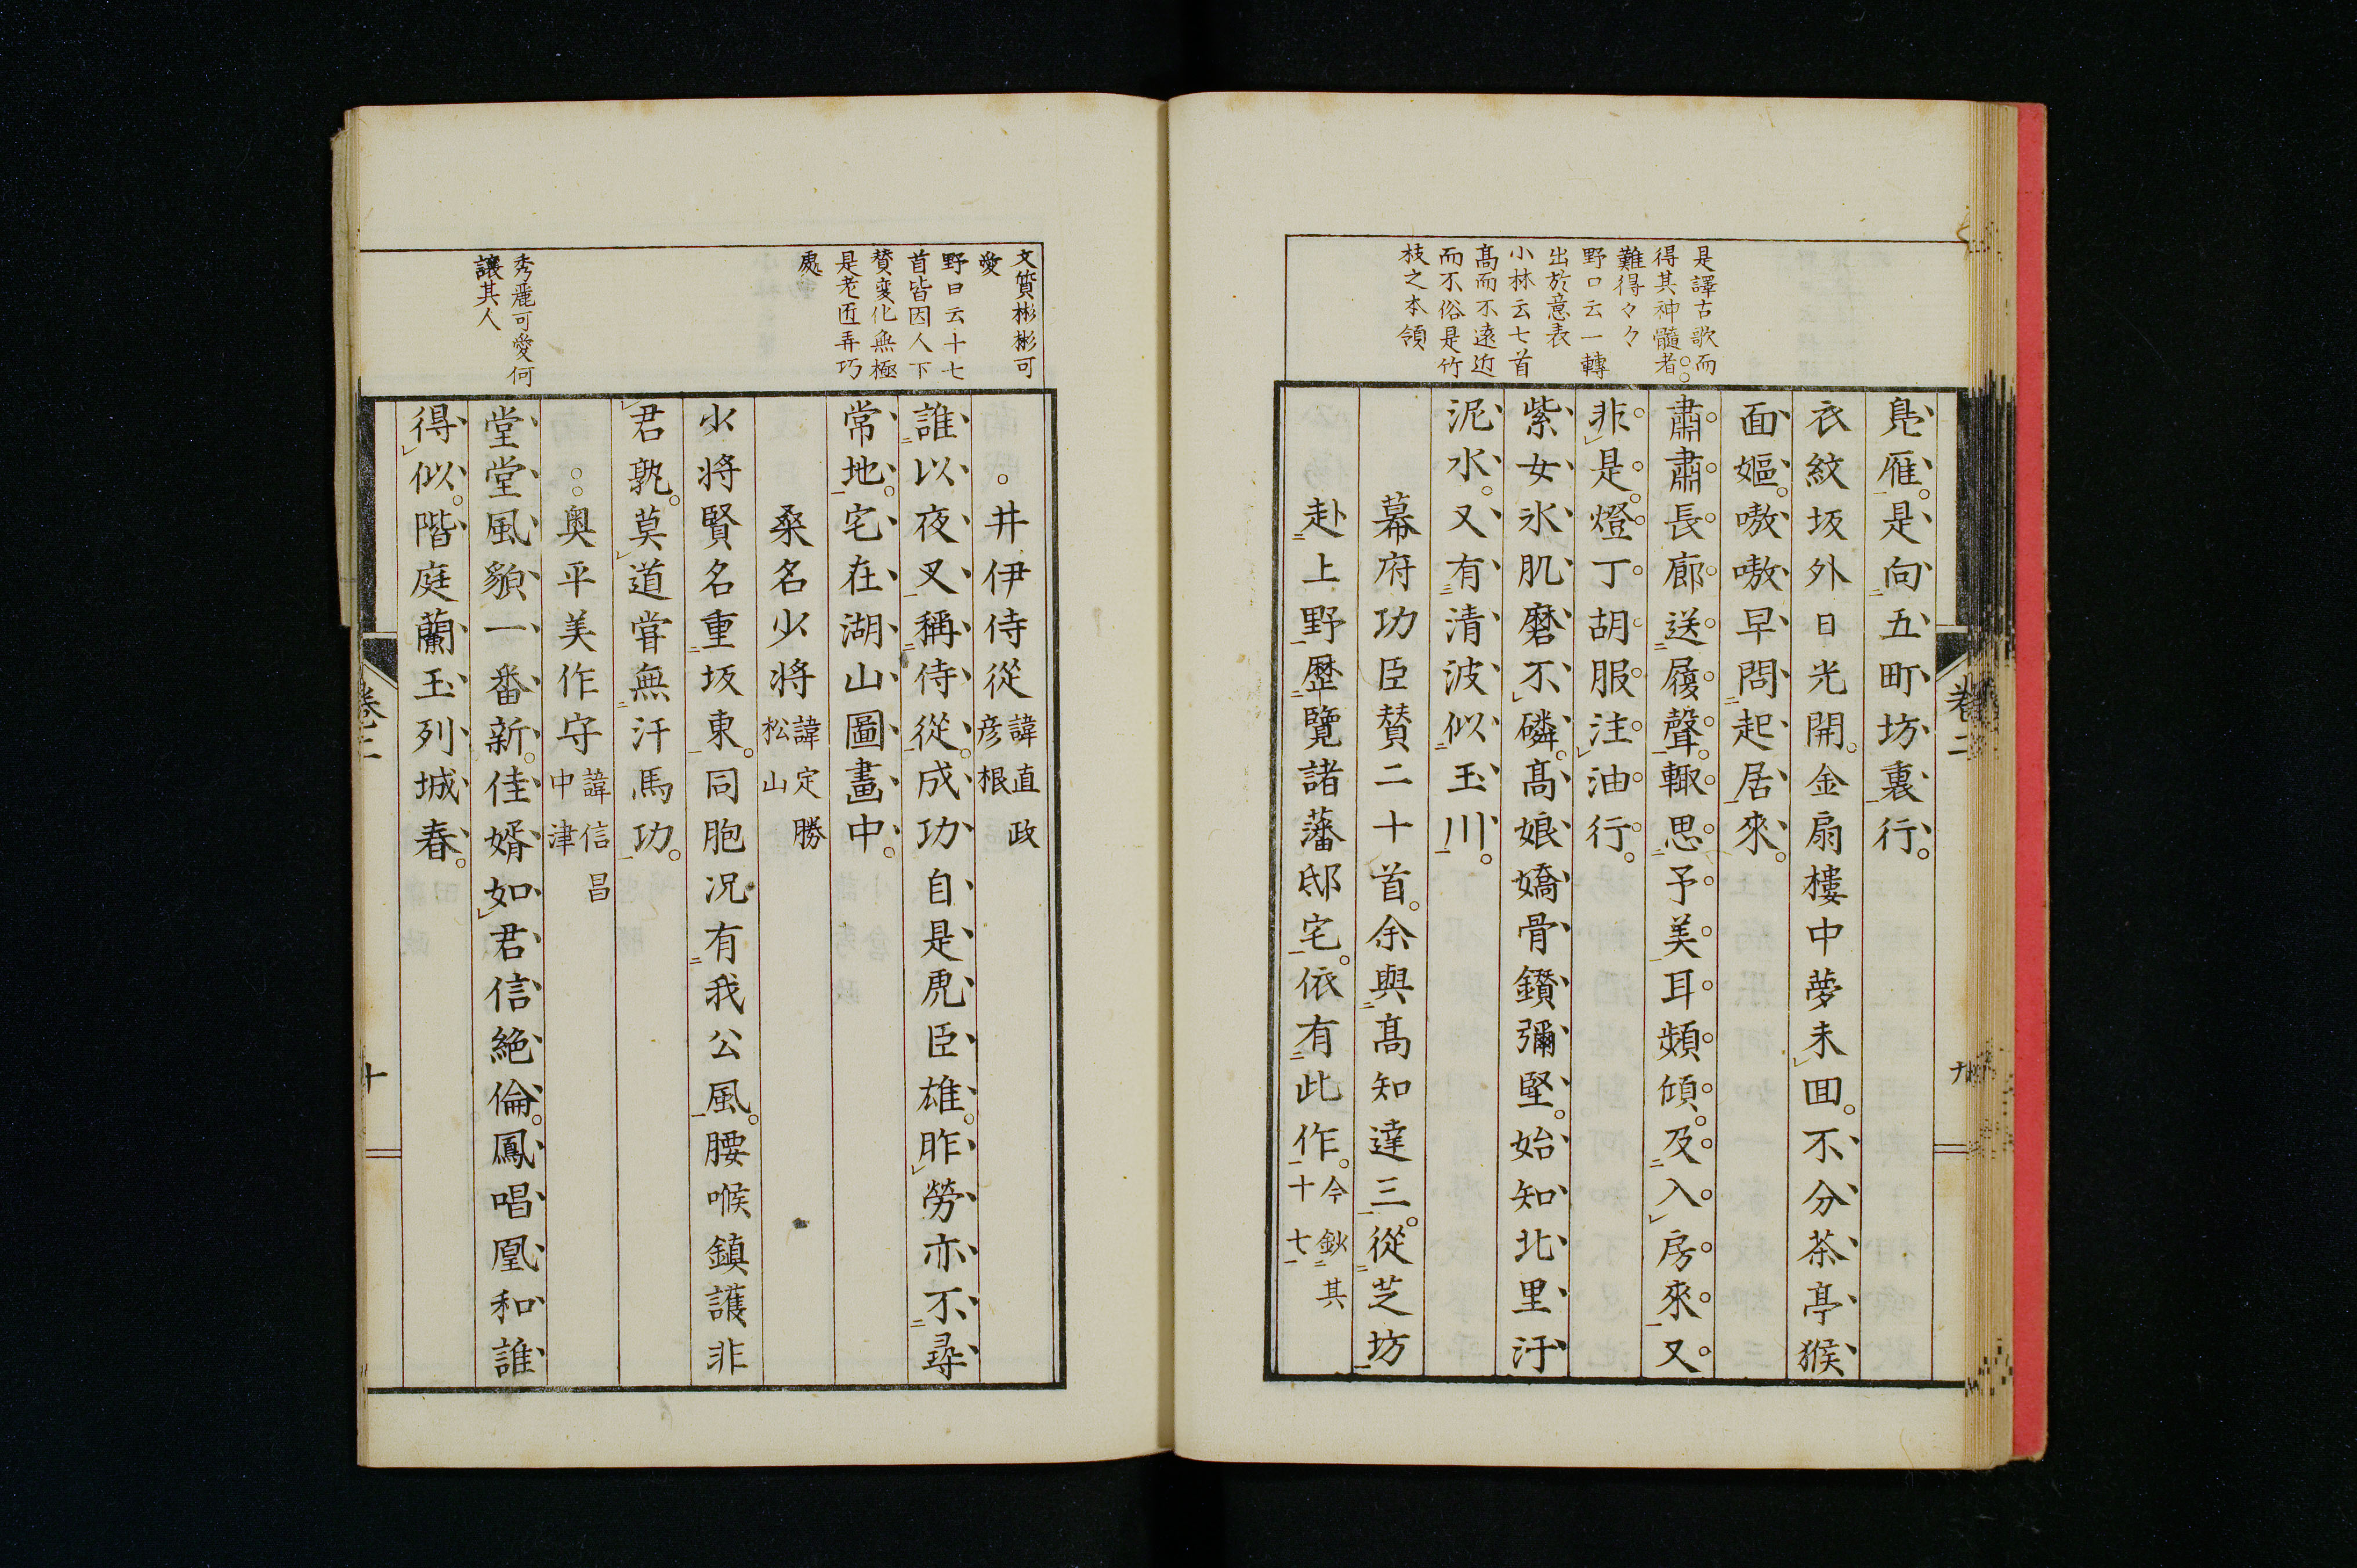 是譯古歌而
得其神髓者
難得々々
野口云一轉
出於意表
小林云七首
高而不遠近
而不俗是竹
枝之本領
鳧雁。是向五町坊裏行。
衣紋坂外日光開。金扇樓中夢未回。不分茶亭猴
面嫗。嗷嗷早問起居來。
肅肅長廊送履聲。輙思予美耳頻傾。及入房來又
非是。燈丁胡服注油行。
紫女氷肌磨不磷。高娘嬌骨鑽彌堅。始知北里汙
泥水。又有清波似玉川。
幕府功臣賛二十首。余與高知達三。從芝坊
赴上野歷覽諸藩邸宅。依有此作。今鈔其
十七
卷二
九
文質彬彬可
愛
野口云十七
首皆因人下
賛變化無極
是老匠弄巧
處
秀麗可愛何
讓其人
井伊侍從諱直政
彦根
誰以夜叉稱侍從。成功自是虎臣雄。昨勞亦不尋
常地。宅在湖山圖畫中。
桑名少將諱定勝
松山
少將賢名重坂東。同胞况有我公風。腰喉鎮護非
君孰。莫道甞無汗馬功。
奥平美作守諱信昌
中津
堂堂風貌一番新。佳婿如君信絶倫。鳳唱凰和誰
得似。階庭蘭玉列城春。
卷二
十